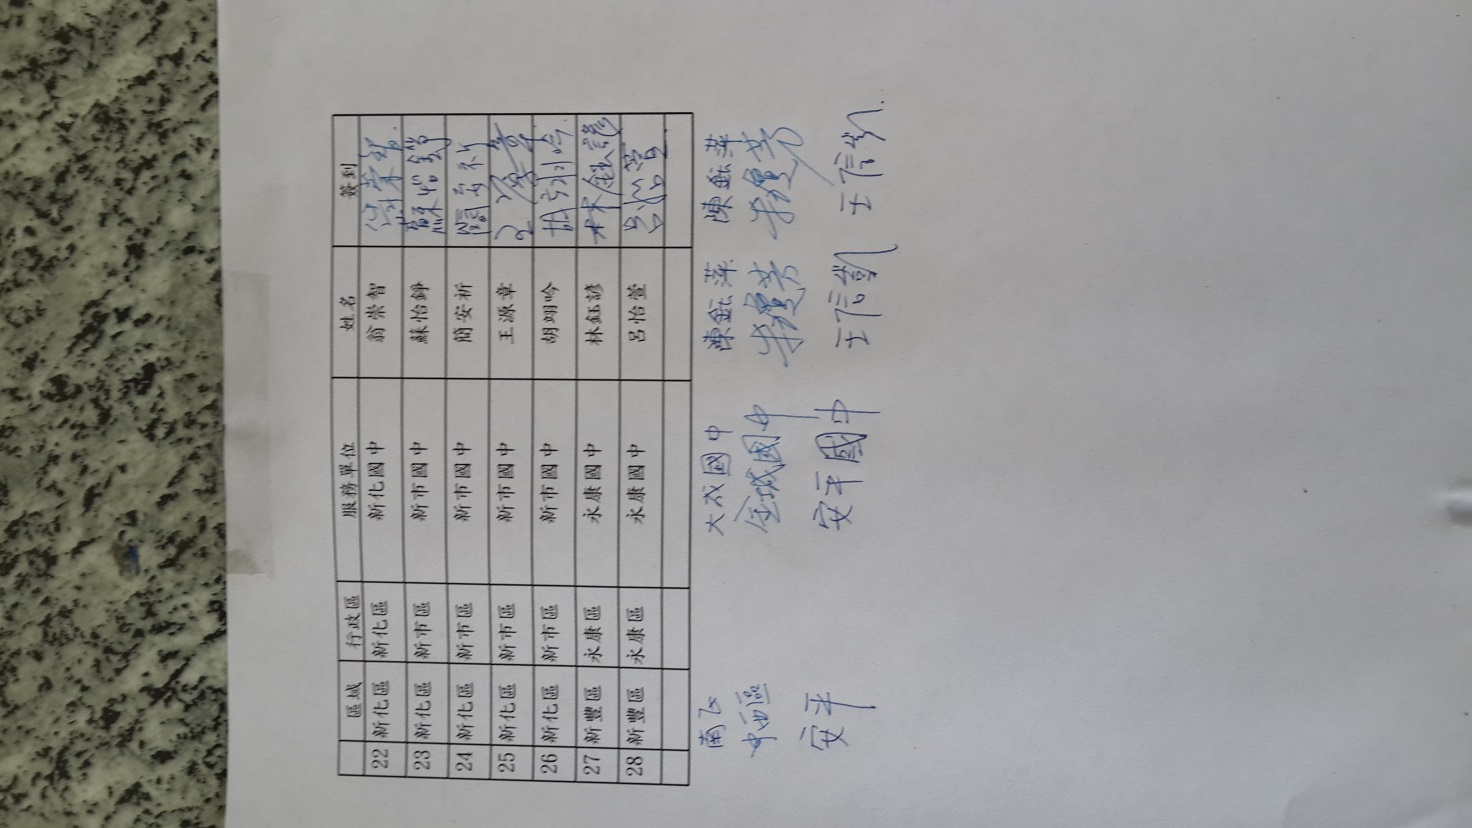 區域 行政區 服務單位 姓名 簽到
22 新化區 新化區 新化國中 翁崇智 翁崇智
23 新化區 新市區 新市國中 蘇怡錚 蘇怡錚
24 新化區 新市區 新市國中 簡安祈 簡安祈
25 新化區 新市區 新市國中 王源章 王源章
26 新化區 新市區 新市國中 胡翊吟 胡翊吟
27 新豐區 永康區 永康國中 林鈺諺 林鈺諺
28 新豐區 永康區 永康國中 呂怡萱 呂怡萱
南區 大成國中 陳鈺
中西區 金城國中
安平 安平國中 王信凱 王信凱